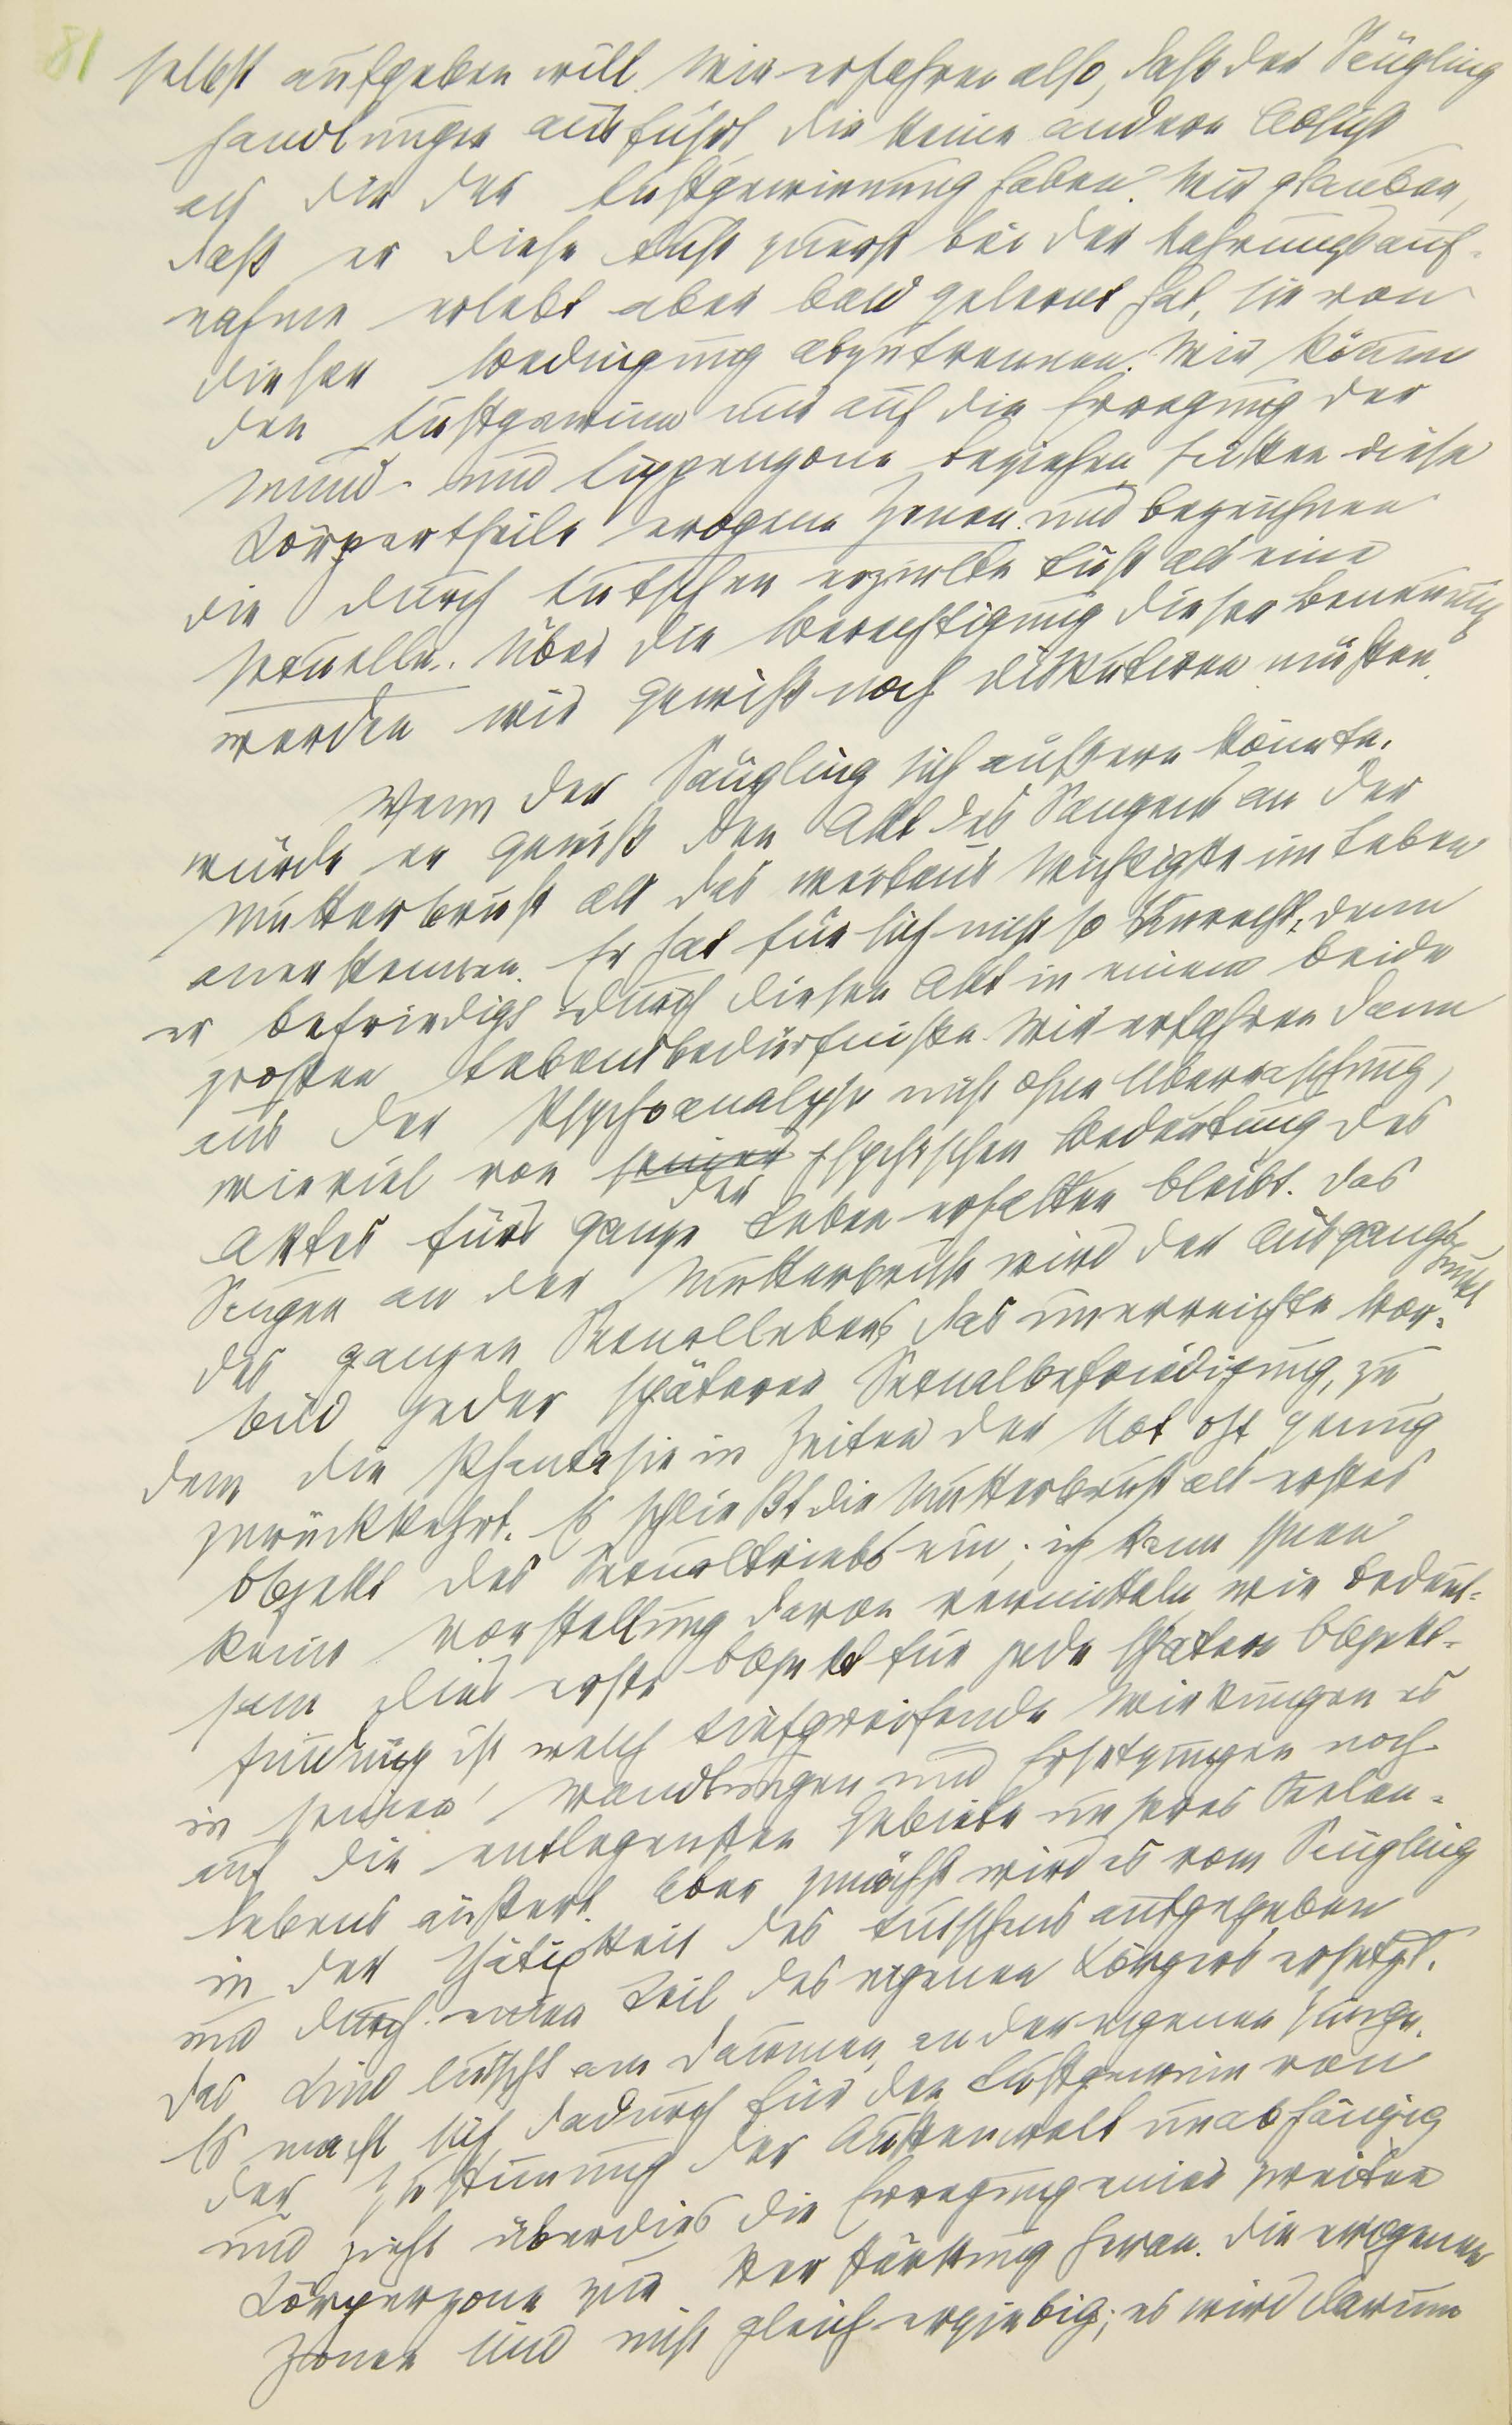 81
selbst aufgeben will. Wir erfahren also, daß der Säugling
Handlungen ausführt, die keine andere Absicht
als die der Lustgewinnung haben. Wir glauben,
daß er diese Lust zuerst bei der Nahrungsauf-
nahme erlebt aber bald gelernt hat, sie von
dieser Bedingung abzutrennen. Wir können
den Lustgewinn nur auf die Erregung der
Mund- und Lippenzone beziehen, heißen diese
Körpertheile erogene Zonen und bezeichnen
die durch Lutschen erzielte Lust als eine
sexuelle. Über die Berechtigung dieser Benennung
werden wir gewiß noch diskutieren müssen.
Wenn der Säugling sich äußern könnte,
würde er gewiß den Akt des Saugens an der
Mutterbrust als das weitaus Wichtigste im Leben
anerkennen. Er hat für sich nicht so Unrecht, denn
er befriedigt durch diesen Akt in einem beide
großen Lebensbedürfnisse. Wir erfahren dann
aus der Psychoanalyse nicht ohne Überraschung,
wieviel von seiner psychischen Bedeutung des
der
Aktes fürs ganze Leben erhalten bleibt. Das
Saugen an der Mutterbrust wird der Ausgangs
punkt
des ganzen Sexuallebens, das unerreichte Vor-
bild jeder späteren Sexualbefriedigung, zu
dem die Phantasie in Zeiten der Not oft genug
zurückkehrt. Es schließt die Mutterbrust als erstes
Objekt des Sexualtriebs ein; ich kann Ihnen
keine Vorstellung davon vermitteln, wie bedeut-
sam dies erste Objekt für jede spätere Objekt-
findung ist, welch tiefgreifende Wirkungen es
in seinen Wandlungen und Ersetzungen noch
auf die entlegensten Gebiete unseres Seelen-
lebens äußert. Aber zunächst wird es vom Säugling
in der Thätigkeit des Lutschens aufgegeben
und durch einen Teil des eigenen Körpers ersetzt.
Das Kind lutscht am Daumen, an der eigenen Zunge.
Es macht sich dadurch für den Lustgewinn von
der Zustimmung der Außenwelt unabhängig
und zieht überdies die Erregung einer zweiten
Körperzone zur Verstärkung heran. Die erogenen
Zonen sind nicht gleich ergiebig; es wird darum